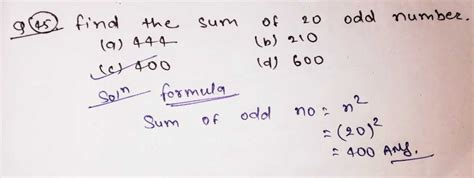 Q(45) find the sum of 20 odd number.
(a) 444 (b) 210
(c) 400 (d) 600
Solⁿ formula
Sum of odd no = n²
= (20)²
= 400 Ans.